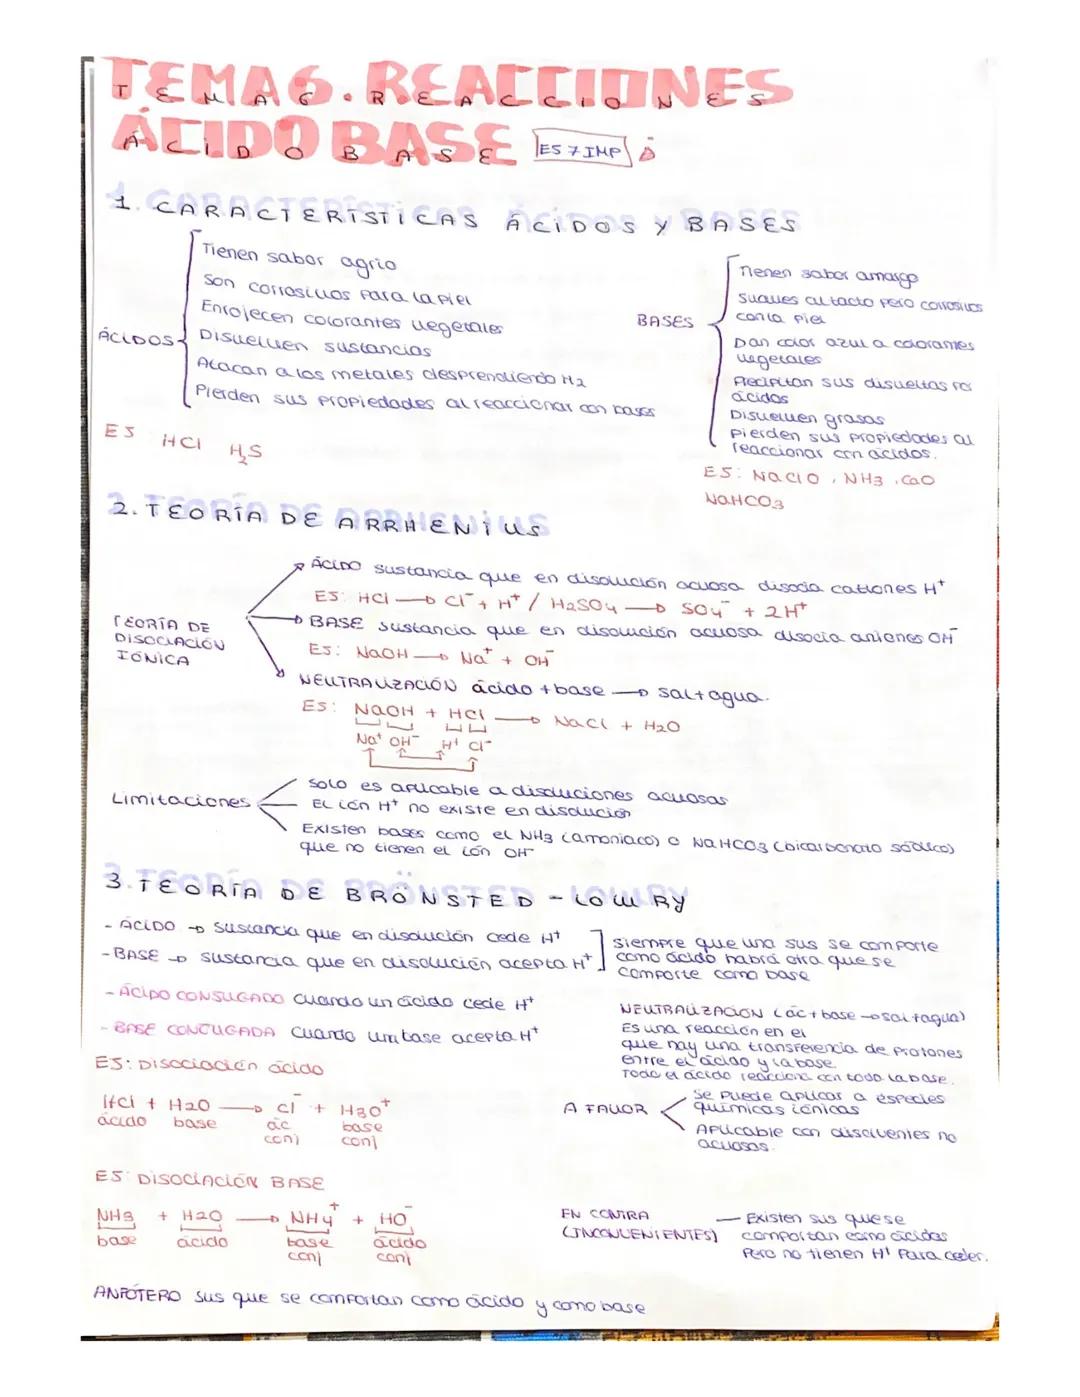 TEMA 6. REACCIONES
ÁCIDO BASE ES 7 IMP
1. CARACTERÍSTICAS ÁCIDOS Y BASES
ÁCIDOS
Tienen sabor agrio
Son corrosivos para la piel
Enrojecen colorantes vegetales
Disuelven sustancias
Atacan a los metales desprendiendo H2
Pierden sus propiedades al reaccionar con bases
EJ HCl H2S
BASES
Tienen sabor amargo
Suaves al tacto pero corrosivos
con la piel
Dan color azul a colorantes
vegetales
Precipitan sus disueltas por
ácidos
Disuelven grasas
Pierden sus propiedades al
reaccionar con ácidos.
EJ: NaClO, NH3, CaO
NaHCO3
2. TEORÍA DE ARRHENIUS
TEORÍA DE
DISOCIACIÓN
IÓNICA
ÁCIDO sustancia que en disolución acuosa disocia cationes H+
EJ: HCl → Cl- + H+ / H2SO4 → SO4- + 2H+
BASE sustancia que en disolución acuosa disocia aniones OH-
EJ: NaOH → Na+ + OH-
NEUTRALIZACIÓN ácido + base → sal + agua.
EJ: NaOH + HCl → NaCl + H2O
Na+ OH- H+ Cl-
Limitaciones
Solo es aplicable a disoluciones acuosas
El ión H+ no existe en disolución
Existen bases como el NH3 (amoniaco) o NaHCO3 (bicarbonato sódico)
que no tienen el ión OH-
3. TEORÍA DE BRÖNSTED - LOWRY
- ÁCIDO → sustancia que en disolución cede H+
- BASE → sustancia que en disolución acepta H+
siempre que una sus se comporte
como ácido habrá otra que se
comporte como base
- ÁCIDO CONJUGADO cuando un ácido cede H+
- BASE CONJUGADA cuando una base acepta H+
EJ: Disociación ácido
HCl + H2O → Cl- + H3O+
ácido base ác base
conj conj
NEUTRALIZACIÓN (ác + base → sal + agua)
Es una reacción en el
que hay una transferencia de protones
entre el ácido y la base.
Todo el ácido reacciona con todo la base.
A FAVOR
Se puede aplicar a especies
químicas iónicas
Aplicable con disolventes no
acuosos.
EJ: DISOCIACIÓN BASE
NH3 + H2O → NH4+ + HO-
base ácido base ácido
conj conj
EN CONTRA
(INCONVENIENTES)
— Existen sus que se
comportan como ácidos
pero no tienen H+ para ceder.
ANFÓTERO sus que se comportan como ácido y como base